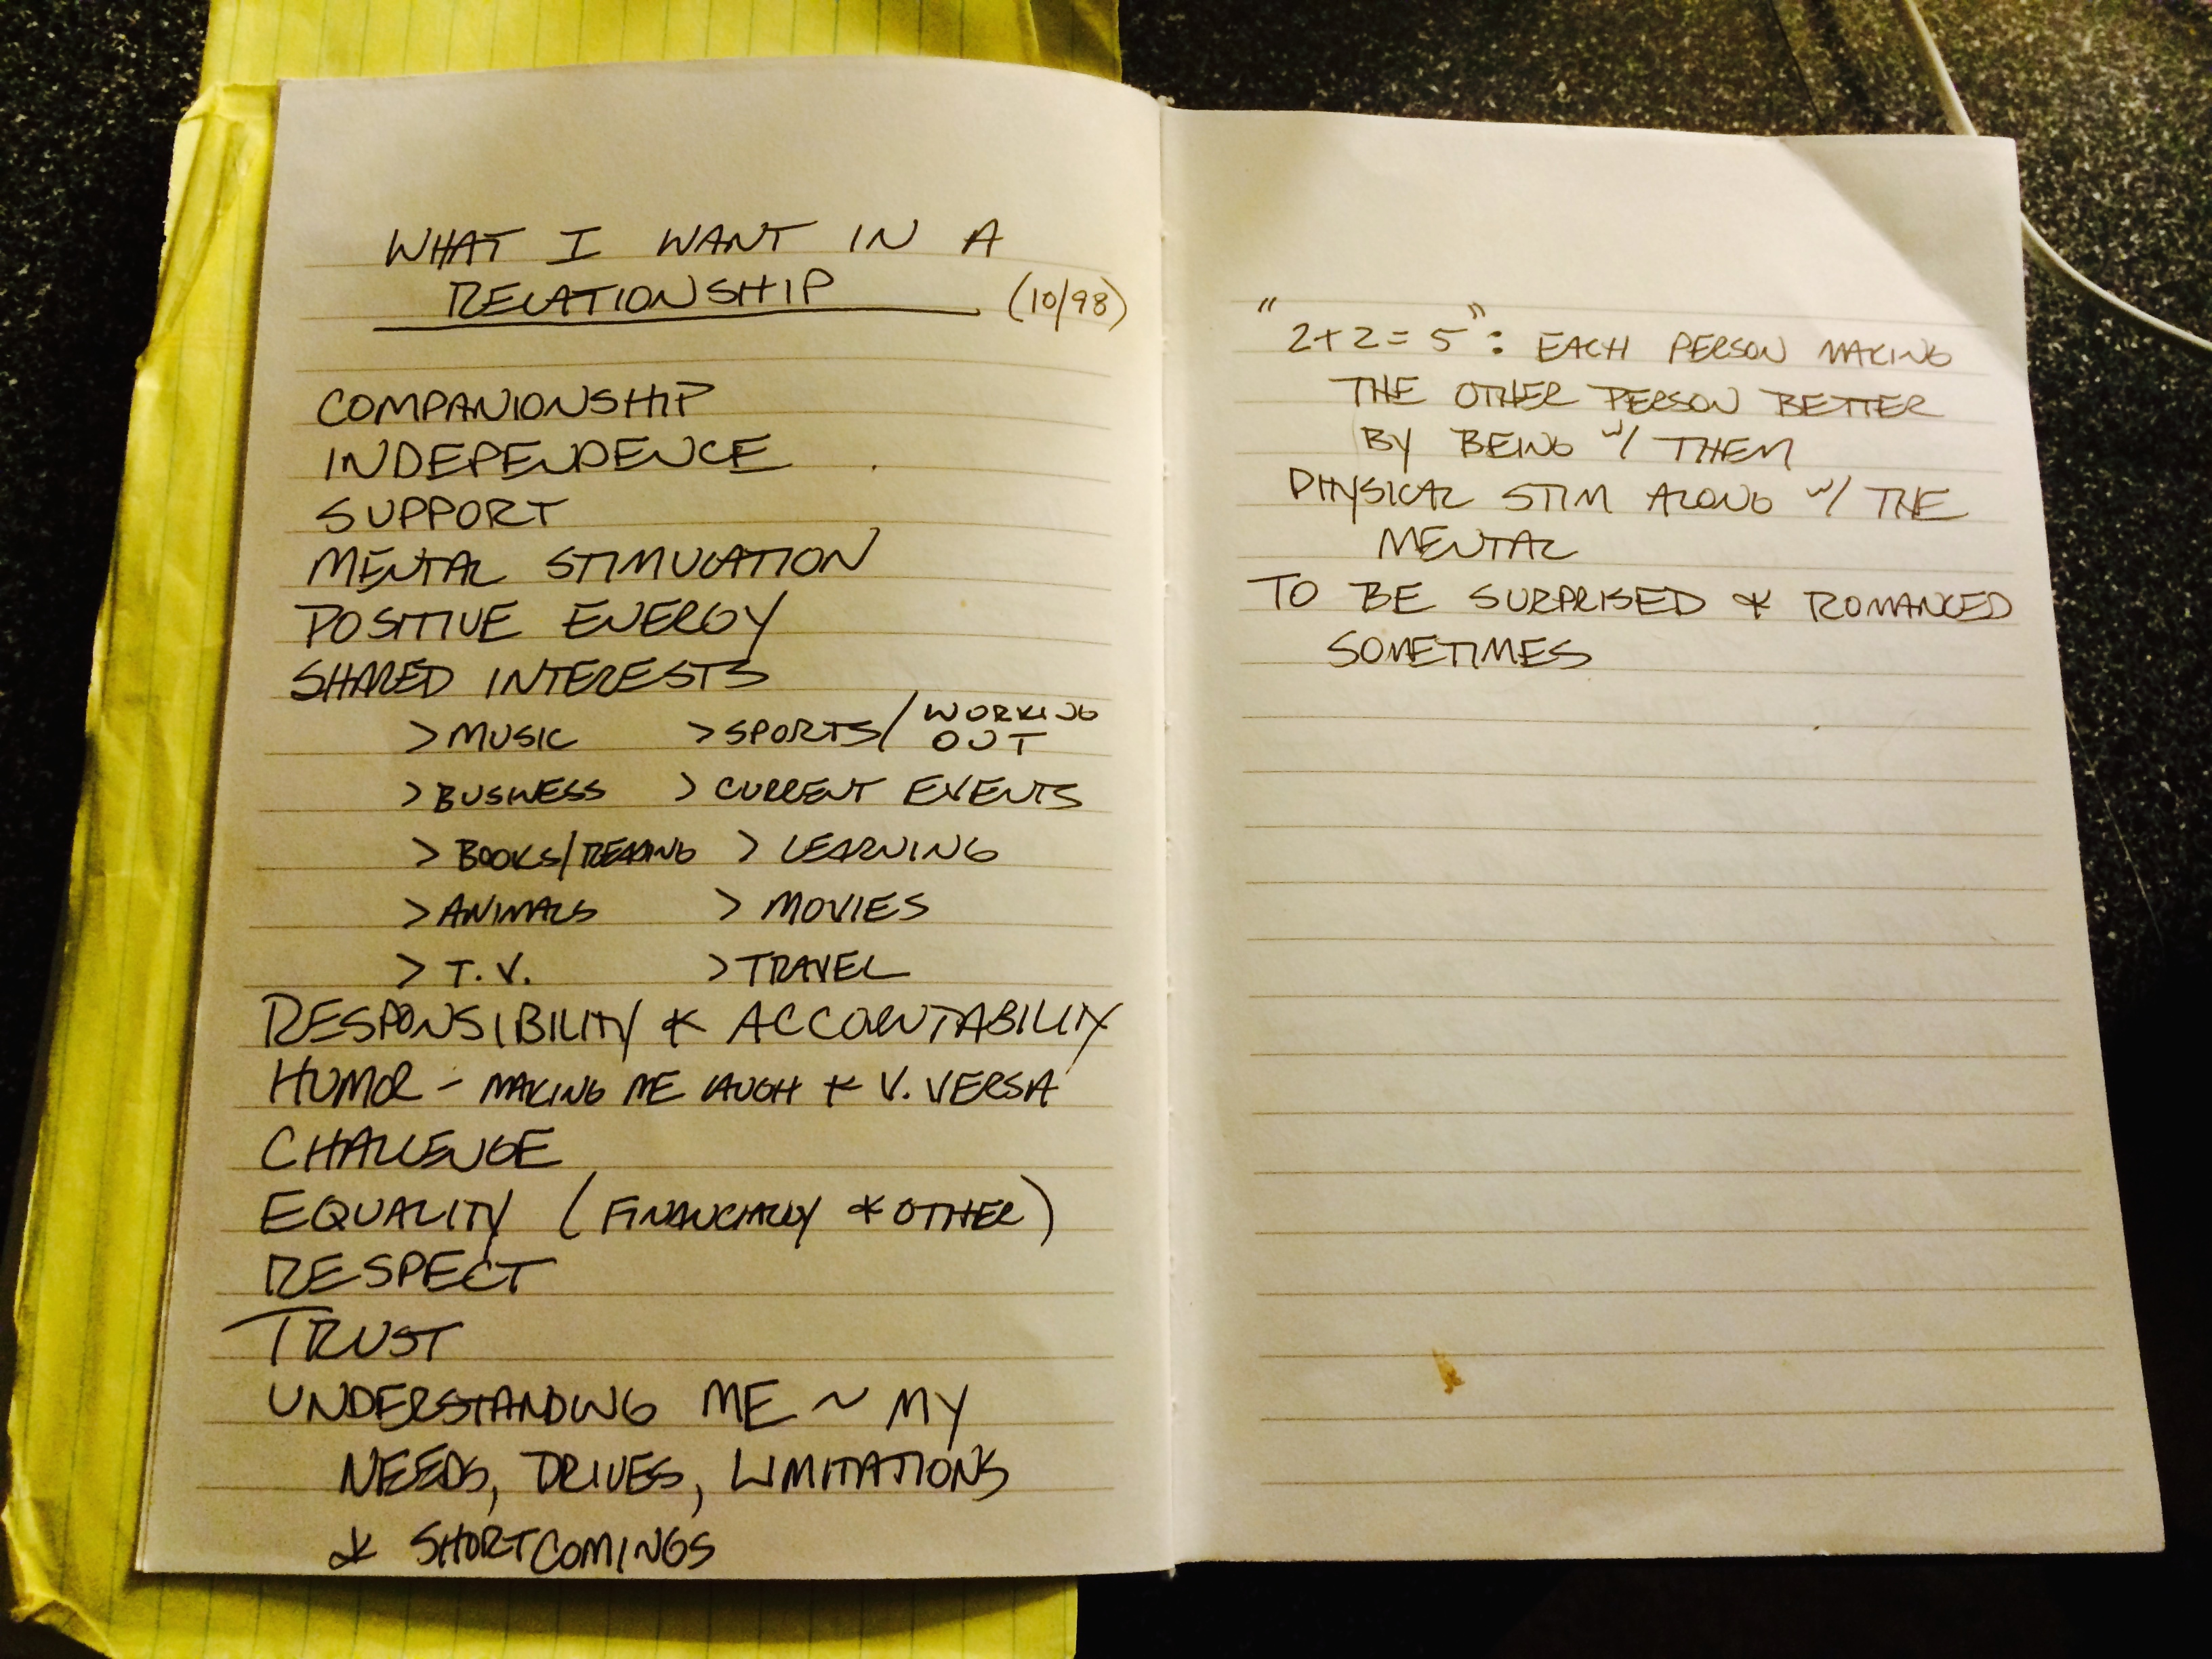 WHAT I WANT IN A
RELATIONSHIP (10/98)
COMPANIONSHIP
INDEPENDENCE
SUPPORT
MENTAL STIMULATION
POSITIVE ENERGY
SHARED INTERESTS
> MUSIC > SPORTS/WORKING OUT
> BUSINESS > CURRENT EVENTS
> BOOKS/READING > LEARNING
> ANIMALS > MOVIES
> T.V. > TRAVEL
RESPONSIBILITY & ACCOUNTABILITY
HUMOR - MAKING ME LAUGH & V. VERSA
CHALLENGE
EQUALITY (FINANCIALLY & OTHER)
RESPECT
TRUST
UNDERSTANDING ME ~ MY
NEEDS, DRIVES, LIMITATIONS
& SHORTCOMINGS
"2+2=5": EACH PERSON MAKING
THE OTHER PERSON BETTER
BY BEING W/ THEM
PHYSICAL STIM ALONG W/ THE
MENTAL
TO BE SURPRISED & ROMANCED
SOMETIMES